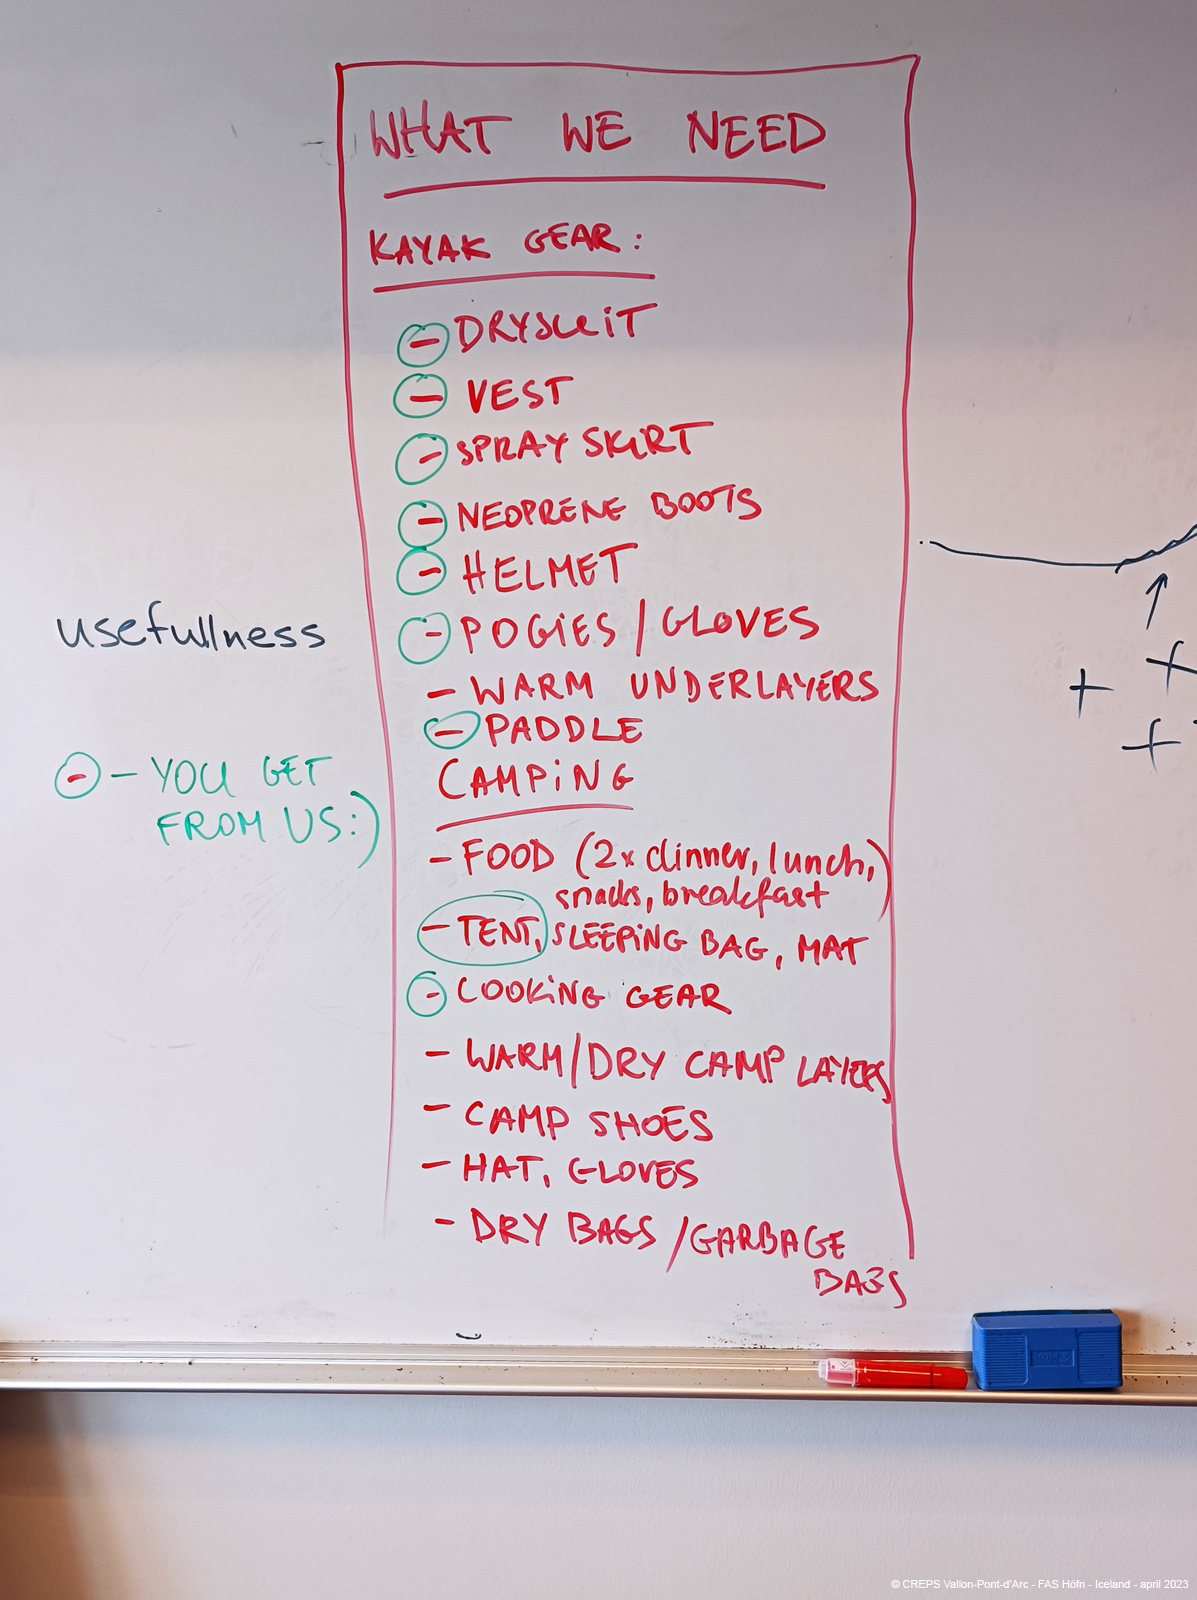 WHAT WE NEED
KAYAK GEAR:
- DRYSUIT
- VEST
- SPRAY SKIRT
- NEOPRENE BOOTS
- HELMET
- POGIES / GLOVES
- WARM UNDERLAYERS
- PADDLE
CAMPING
- FOOD (2x dinner, lunch,
snacks, breakfast)
- TENT, SLEEPING BAG, MAT
- COOKING GEAR
- WARM/DRY CAMP LAYERS
- CAMP SHOES
- HAT, GLOVES
- DRY BAGS / GARBAGE
BAGS
usefullness
- – YOU GET
FROM US:)
+ +
+
© CREPS Vallon-Pont-d'Arc - FAS Höfn - Iceland - april 2023